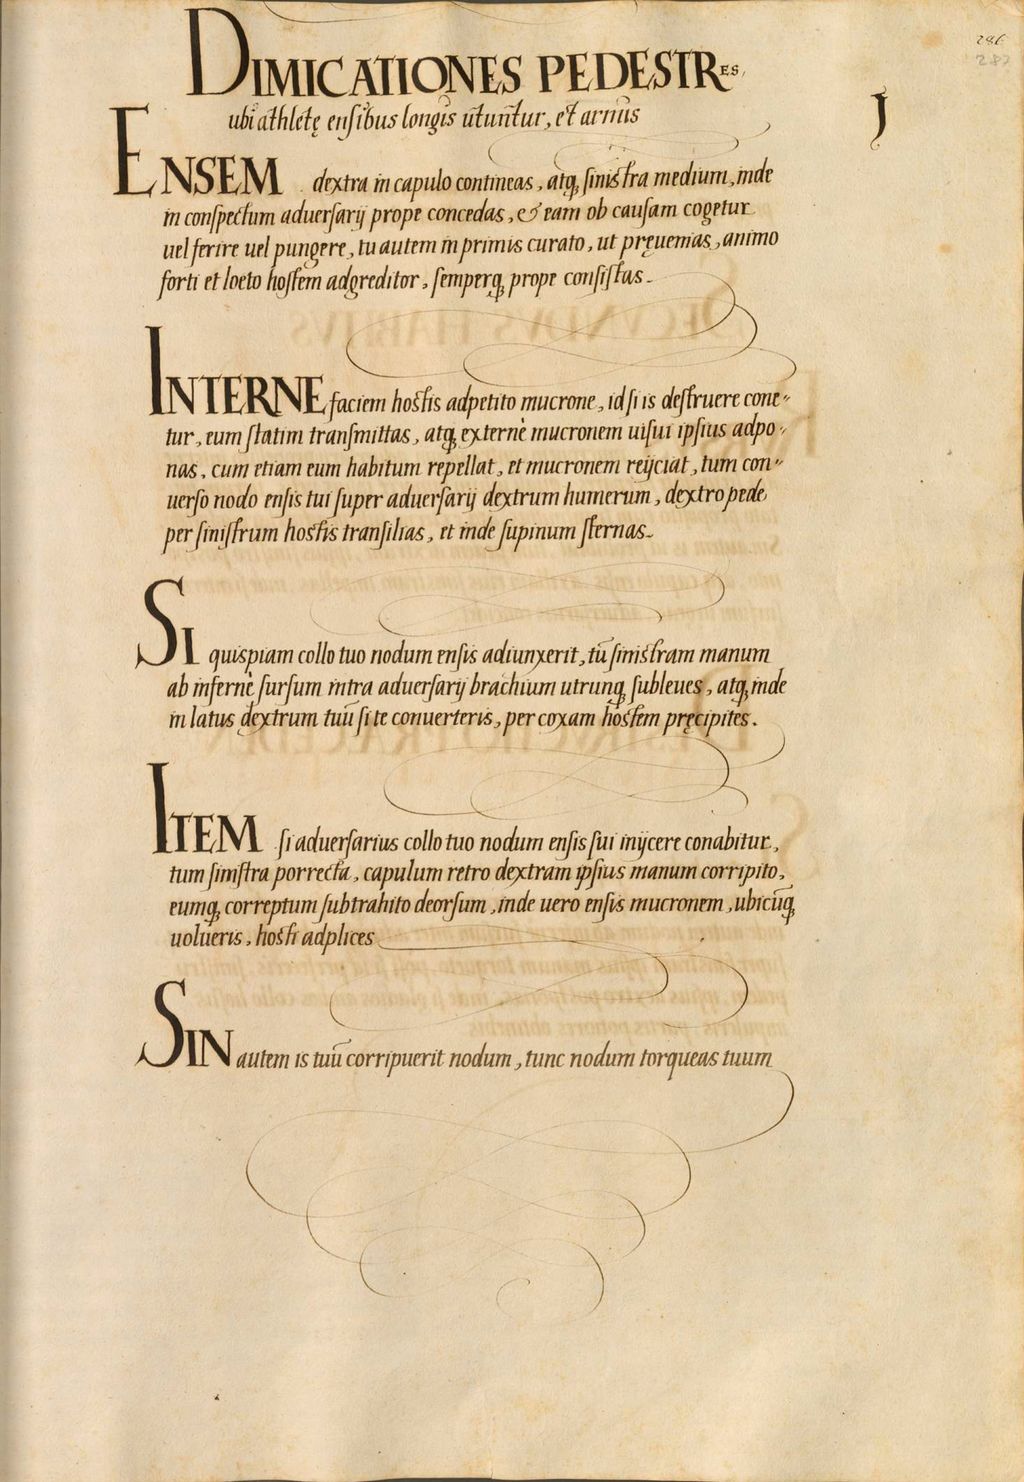 286
287
DIMICATIONES PEDESTRES,
ubi athletę ensibus longis utuntur, et armis
J
ENSEM dextra in capulo contineas, atq; sinistra medium, inde
in conspectum aduersarij prope concedas, & eam ob causam cogetur
uel ferire uel pungere, tu autem in primis curato, ut pręuenias, animo
forti et loeto hostem adgreditor, semperq; prope consistas.
INTERNE faciem hostis adpetito mucrone, id si is destruere cone〃
tur, eum statim transmittas, atq; externè mucronem uisui ipsius adpo〃
nas, cum etiam eum habitum repellat, et mucronem reijciat, tum con〃
uerso nodo ensis tui super aduersarij dextrum humerum, dextro pede
per sinistrum hostis transilias, et inde supinum sternas.
SI quispiam collo tuo nodum ensis adiunxerit, tū sinistram manum
ab infernè sursum intra aduersarij brachium utrunq; subleues, atq; inde
in latus dextrum tuū si te conuerteris, per coxam hostem pręcipites.
ITEM si aduersarius collo tuo nodum ensis sui inijcere conabitur,
tum sinistra porrecta, capulum retro dextram ipsius manum corripito,
eumq; correptum subtrahito deorsum, inde uero ensis mucronem, ubicūq;
uolueris, hosti adplices
SIN autem is tuū corripuerit nodum, tunc nodum torqueas tuum